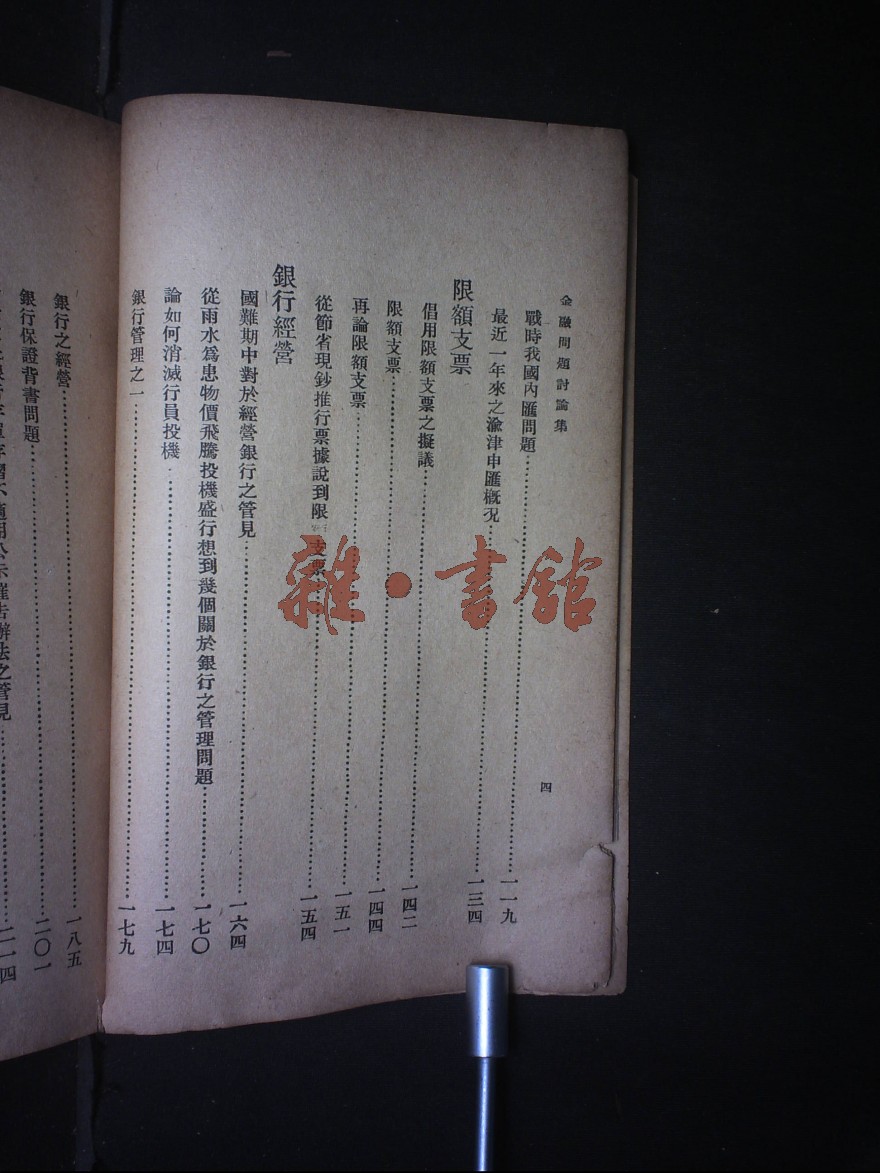 金融問題討論集
四
戰時我國內匯問題……一一九
最近一年來之渝津申匯概況……一三四
限額支票
倡用限額支票之擬議……一四二
限額支票……一四四
再論限額支票……一五一
從節省現鈔推行票據說到限支票……一五四
銀行經營
國難期中對於經營銀行之管見……一六四
從雨水爲患物價飛騰投機盛行想到幾個關於銀行之管理問題……一七〇
論如何消滅行員投機……一七四
銀行管理之一……一七九
銀行之經營……一八五
銀行保證背書問題……二〇一
不適用公示催告辦法之管見……二一四
雜·書館